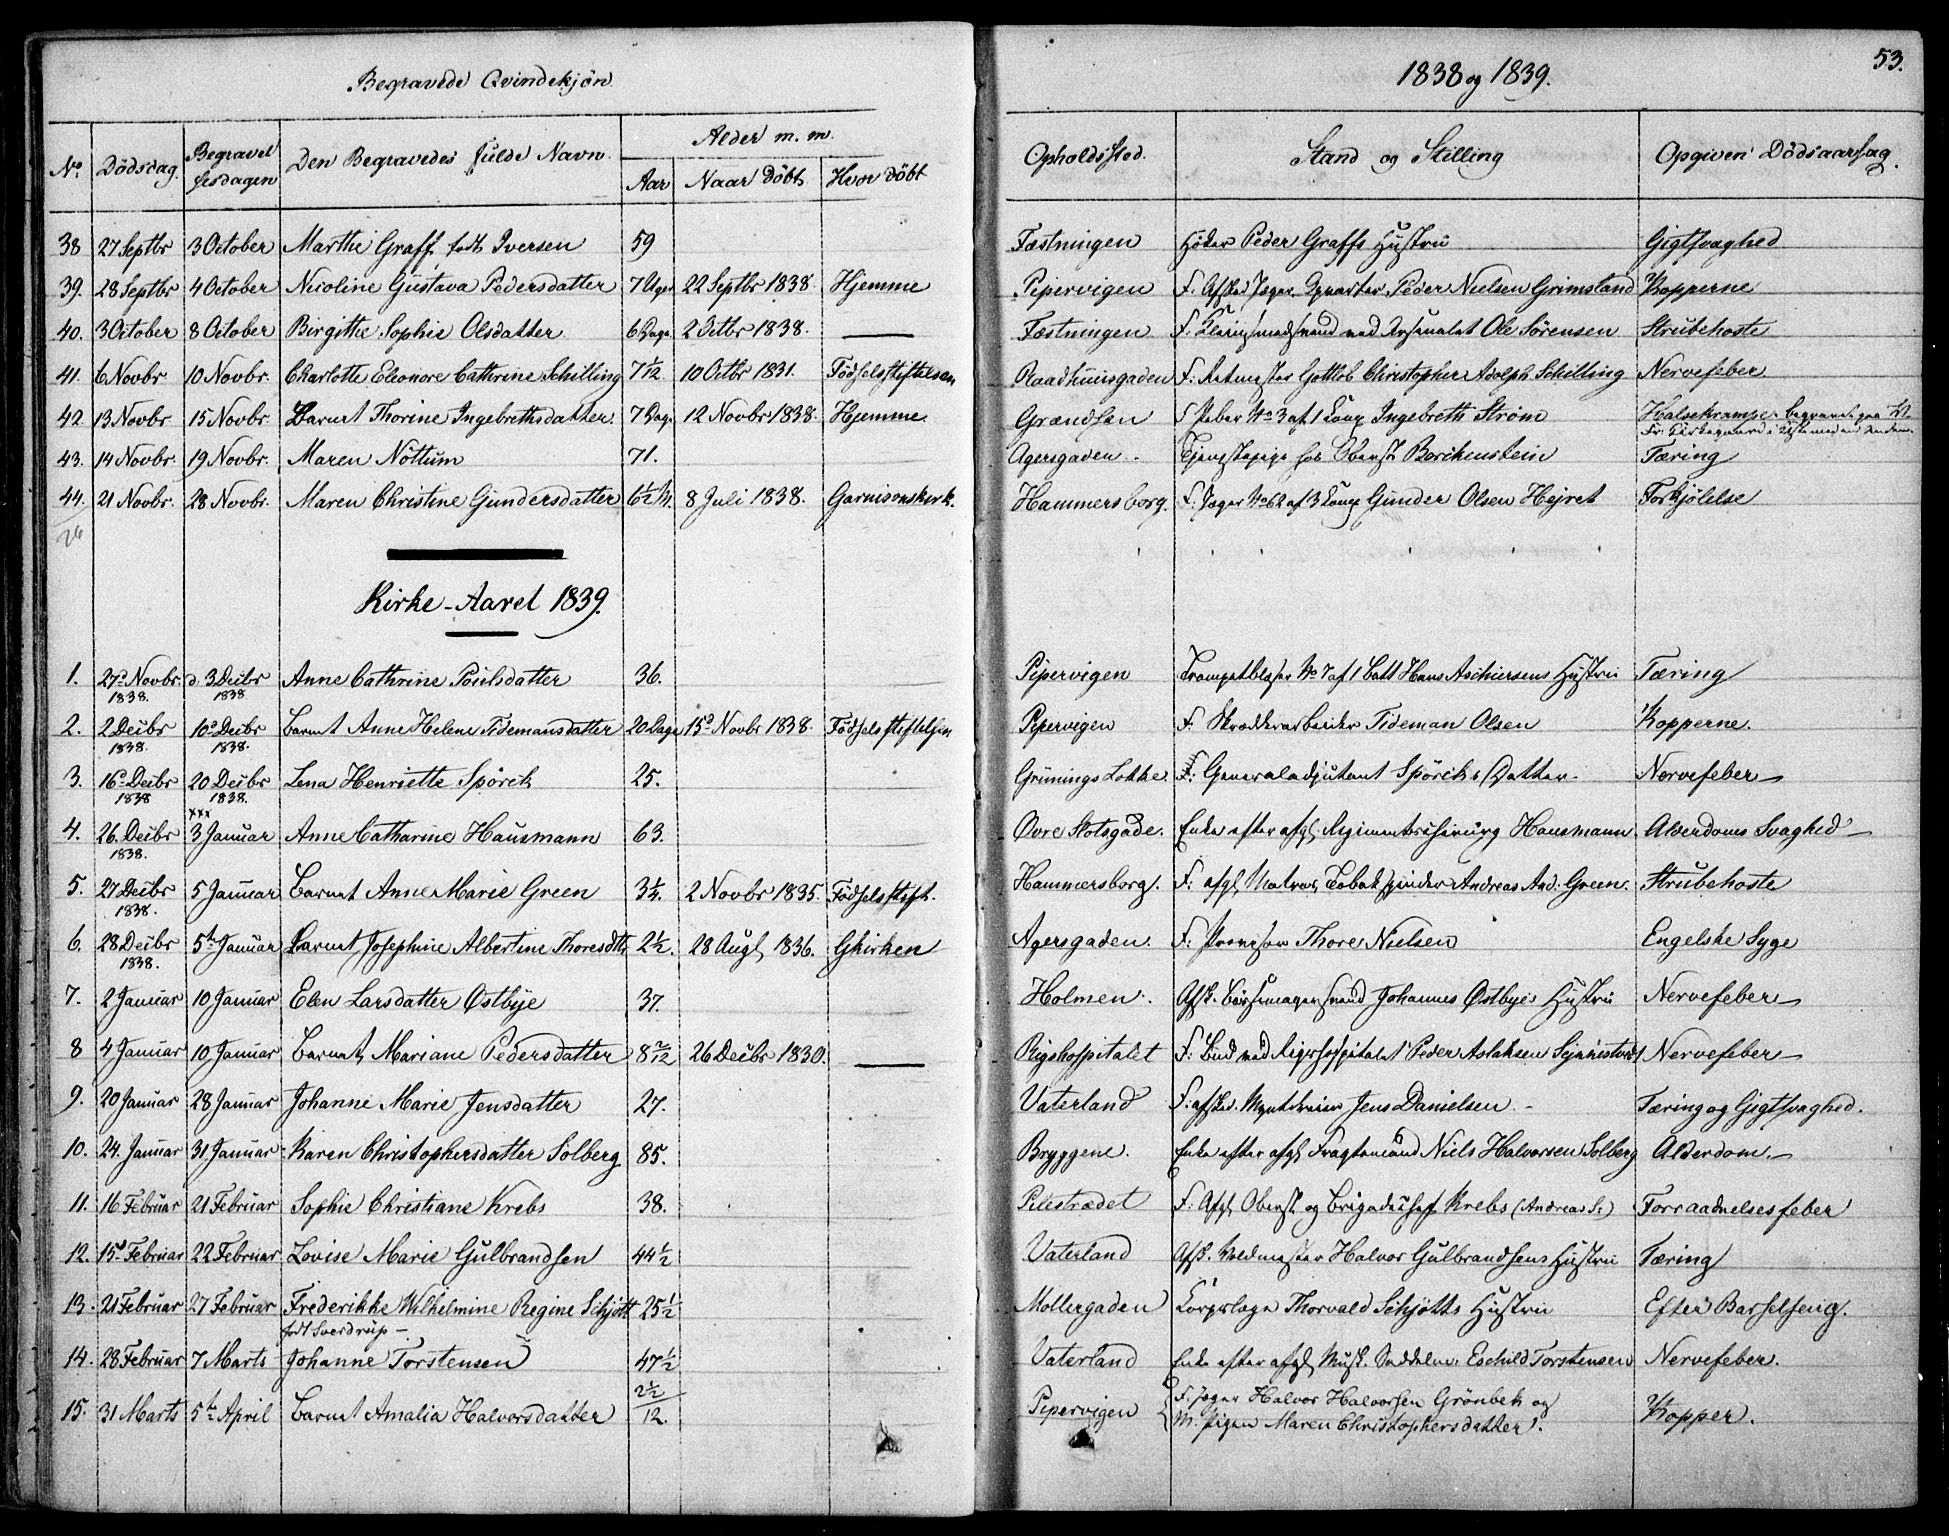 Begravede Qvindekjön.
1838 og 1839.
53.
No. Dödsdag. Begravelsesdagen Den Begravedes fulde Navn. Alder m. m. Aar Naar döbt Hvor döbt Opholdssted. Stand og Stilling Opgiven Dödsaarsag.
38 27 Septbr 3 October Marthe Graff, födt Iversen 59 Fæstningen Peder Graffs Hustru Gigtsvaghed
39. 28 Septbr 4 October Nicoline Gustava Pedersdatter 7 Uger 22 Septbr 1838. Hjemme Pipervigen F. Afsked Jæger, Peder Nielsen Grimsland Kopperne
40. 3 October 8 October Birgitthe Sophie Olsdatter 6 Dage 2 Octbr 1838. — Fæstningen F. Kleinsmedsvend ved Arsenalet Ole Sörensen Strubehoste
41. 6 Novbr 10 Novbr. Charlotte Eleonore Cathrine Schilling 7 1/12 10 Octbr 1831. Födselsstiftelsen Raadhuusgaden F. Gottlob Christopher Adolph Schilling Nervefeber.
42 13 Novbr. 15 Novbr. Barnet Thorine Ingebrethsdatter. 7 Dage 12 Novbr 1838. Hjemme Grændsen No 3 af 1 Comp Ingebreth Ström Halsekrampe. begravet paa
43. 14 Novbr. 19 Novbr. Maren Nöttum 71. Agersgaden. Tjenestepige hos Oberst Borchenstein Tæring
44. 21 Novbr. 28 Novbr. Maren Christine Gundersdatter 6 1/2 M. 8 Juli 1838. Garnisonskirk. Hammersborg. F. Jæger No 62 af 3 Comp Gunder Olsen Hejret Forkjölelse
Kirke-Aaret 1839.
1. 27 Novbr. 1838. d. 3 Decbr 1838 Anne Cathrine Poulsdatter 36. Pipervigen Trompetblæser No 7 af 1 Batt Hans Aschiersens Hustru Tæring
2. 2 Decbr 1838. 10 Decbr 1838. Barnet Anne Helene Tidemansdatter 20 Dage 15 Novbr 1838. Födselsstiftelsen Pipervigen F. Skrædderarbeider Tideman Olsen Kopperne.
3. 16 Decbr 1838 20 Decbr 1838. Lena Henriette Spörck 25. Grünings Lökke. F. Generaladjutant Spörcks Datter. Nervefeber
4. 26. Decbr 1838. xxx 3 Januar Anne Catharine Hausmann 63. Övre Slotsgade. Enke efter afgl. Regimentschirurg Hausmann Alderdoms Svaghed
5. 27 Decbr 1838. 5 Januar Barnet Anne Marie Green 3 1/4. 2 Novbr 1835. Födselsstift. Hammersborg. F. afgl. Tobakspinder Andreas And. Green. Strubehoste
6. 28 Decbr 1838. 5te Januar Barnet, Josephine Albertine Thoresdtr 2 1/2. 28 Augt, 1836. Gkirken Agersgaden. F. Thore Nielsen Engelske Syge
7. 2 Januar 10 Januar Elen Larsdatter Östbye 37. Holmen. Afsk. Bössemagersvend Johannes Östbyes Hustru Nervefeber
8 4 Januar 10 Januar Barnet, Mariane Pedersdatter 8 2/12 26 Decbr 1830. — Rigshospitalet F. Bud ved Rigshospitalet Peder Aslaksen Nervefeber
9. 20 Januar 28 Januar Johanne Marie Jensdatter 27. Vaterland F. afsked. Jens Danielsen Tæring og Gigtsvaghed.
10. 24. Januar 31 Januar Karen Christophersdatter Solberg 85. Bryggene. Enke efter afgl. Fragtemand Niels Halvorsen Solberg Alderdom.
11. 16 Februar 21 Februar Sophie Christiane Krebs 38. Pilestrædet F. Afgl. Oberst og Brigadechef Krebs (Andreas S.) Forraadnelsesfeber
12. 15 Februar 22 Februar Lovise Marie Gulbrandsen 44 1/2 Vaterland Afsk. Halvor Gulbrandsens Hustru Tæring
13. 21 Februar 27 Februar Frederikke Wilhelmine Regine Schjött födt Sverdrup 25 1/2 Mollergaden Corpslæge Thorvald Schjötts Hustru Efter Barselseng.
14. 28 Februar 7 Marts Johanne Torstensen 47 1/2 Vaterland Enke efter afgl. Musk. Eschild Torstensen Nervefeber.
15. 31 Marts 5te April Barnet Amalia Halvorsdatter 2 1/2 / 12. Pipervigen F. Jæger Halvor Halvorsen Grönbek og
M. Pigen Maren Christophersdatter. Kopper.